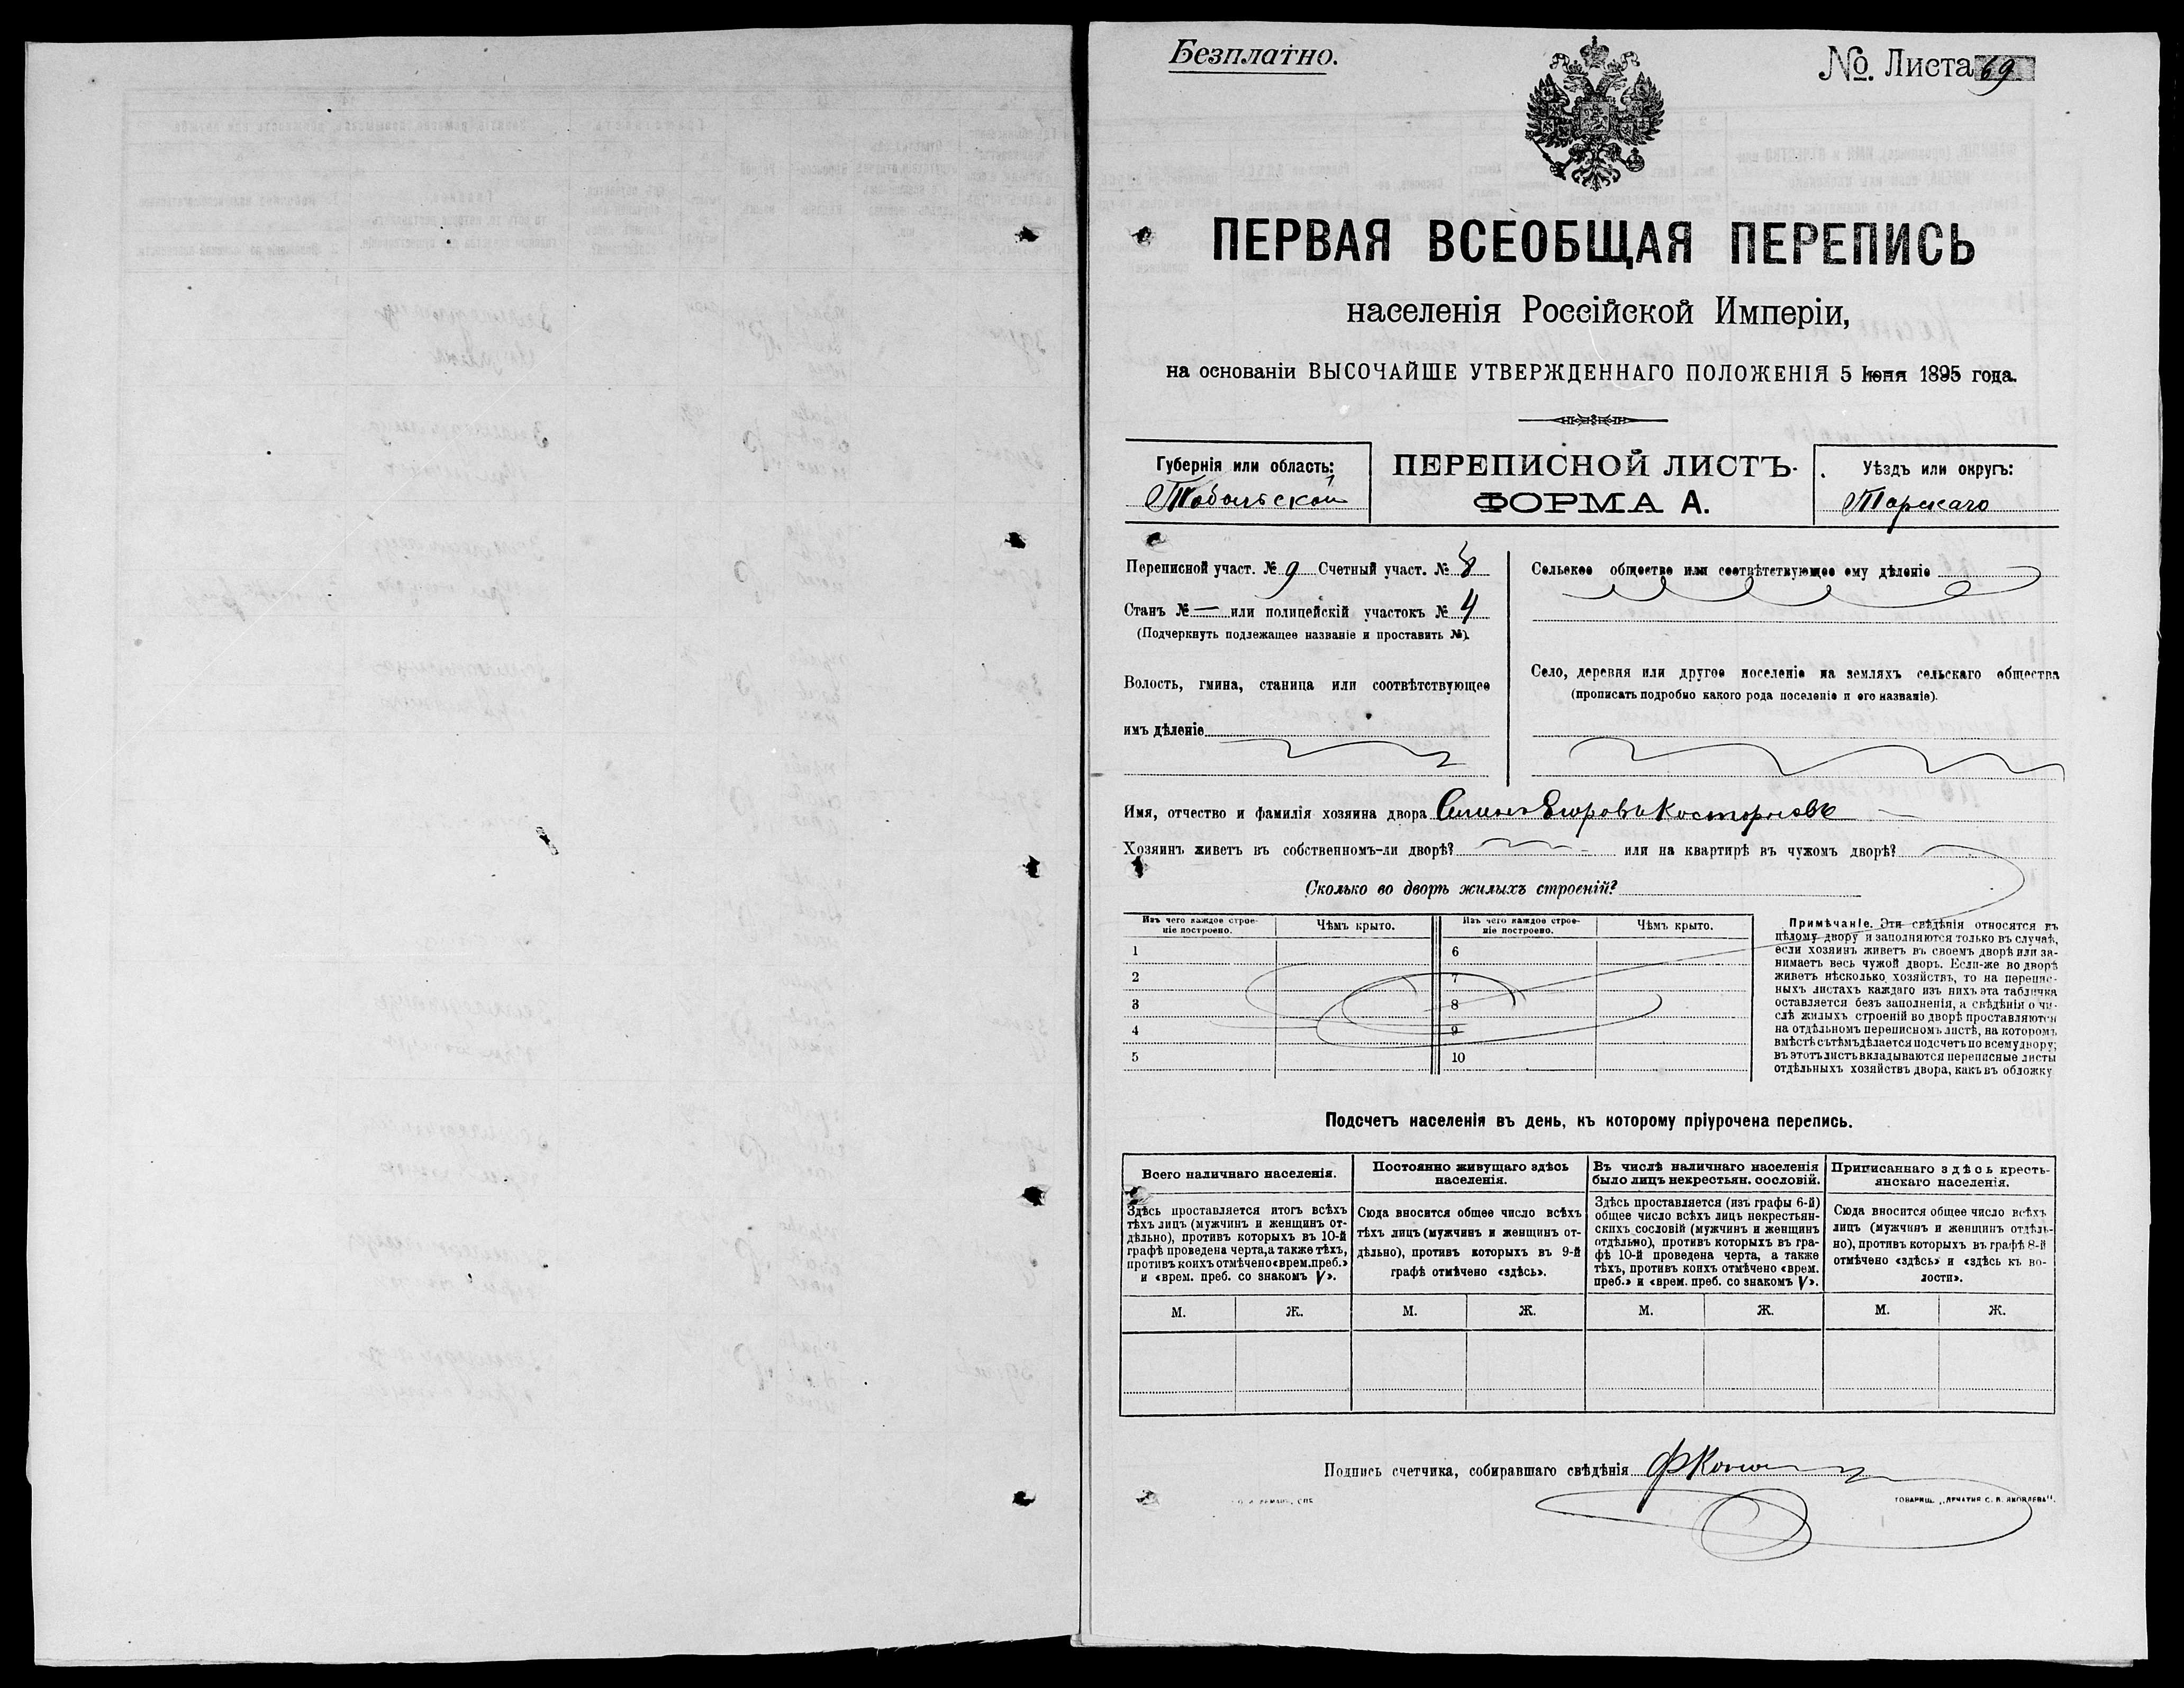 Безплатно.
№ Листа 69
ПЕРВАЯ ВСЕОБЩАЯ ПЕРЕПИСЬ
населенія Россійской Имперіи,
на основаніи ВЫСОЧАЙШЕ УТВЕРЖДЕННАГО ПОЛОЖЕНІЯ 5 Іюня 1895 года.
Губернія или область:
Тобольской
ПЕРЕПИСНОЙ ЛИСТЪ.
ФОРМА А.
Уѣздъ или округъ:
Тарскаго
Переписной участ. № 9 Счетный участ. № 8
Станъ № — или полицейскій участокъ № 4
(Подчеркнуть подлежащее названіе и проставить №).
Волость, гмина, станица или соотвѣтствующее
имъ дѣленіе
Сельское общество или соотвѣтствующее ему дѣленіе
Село, деревня или другое поселеніе на земляхъ сельскаго общества
(прописать подробно какого рода поселеніе и его названіе).
Имя, отчество и фамилія хозяина двора Егоровъ Костырновъ
Хозяинъ живетъ въ собственномъ-ли дворѣ? или на квартирѣ въ чужомъ дворѣ?
Сколько во дворѣ жилыхъ строеній?
Изъ чего каждое строе-
ніе построено.
Чѣмъ крыто.
Изъ чего каждое строе-
ніе построено.
Чѣмъ крыто.
1 6
2 7
3 8
4 9
5 10
Примѣчаніе. Эти свѣдѣнія относятся къ
цѣлому двору и заполняются только въ случаѣ,
если хозяинъ живетъ въ своемъ дворѣ или за-
нимаетъ весь чужой дворъ. Если-же во дворѣ
живетъ нѣсколько хозяйствъ, то на перепис-
ныхъ листахъ каждаго изъ нихъ эта табличка
оставляется безъ заполненія, а свѣдѣнія о чи-
слѣ жилыхъ строеній во дворѣ проставляются
на отдѣльномъ переписномъ листѣ, на которомъ
вмѣстѣ съ тѣмъ дѣлается подсчетъ по всему двору;
въ этотъ листъ вкладываются переписные листы
отдѣльныхъ хозяйствъ двора, какъ въ обложку
Подсчетъ населенія въ день, къ которому пріурочена перепись.
Всего наличнаго населенія.
Здѣсь проставляется итогъ всѣхъ
тѣхъ лицъ (мужчинъ и женщинъ от-
дѣльно), противъ которыхъ въ 10-й
графѣ проведена черта, а также тѣхъ,
противъ коихъ отмѣчено «врем. преб.»
и «врем. преб. со знакомъ V».
Постоянно живущаго здѣсь
населенія.
Сюда вносится общее число всѣхъ
тѣхъ лицъ (мужчинъ и женщинъ от-
дѣльно), противъ которыхъ въ 9-й
графѣ отмѣчено «здѣсь».
Въ числѣ наличнаго населенія
было лицъ некрестьян. сословій.
Здѣсь проставляется (изъ графы 6-й)
общее число всѣхъ лицъ некрестьян-
скихъ сословій (мужчинъ и женщинъ
отдѣльно), противъ которыхъ въ гра-
фѣ 10-й проведена черта, а также
тѣхъ, противъ коихъ отмѣчено «врем.
преб.» и «врем. преб. со знакомъ V».
Приписаннаго здѣсь кресть-
янскаго населенія.
Сюда вносится общее число всѣхъ
лицъ (мужчинъ и женщинъ отдѣль-
но), противъ которыхъ въ графѣ 8-й
отмѣчено «здѣсь» и «здѣсь къ во-
лости».
М. Ж. М. Ж. М. Ж. М. Ж.
Подпись счетчика, собиравшаго свѣдѣнія
ТОВАРИЩ. „ПЕЧАТНЯ С. П. ЯКОВЛЕВА".